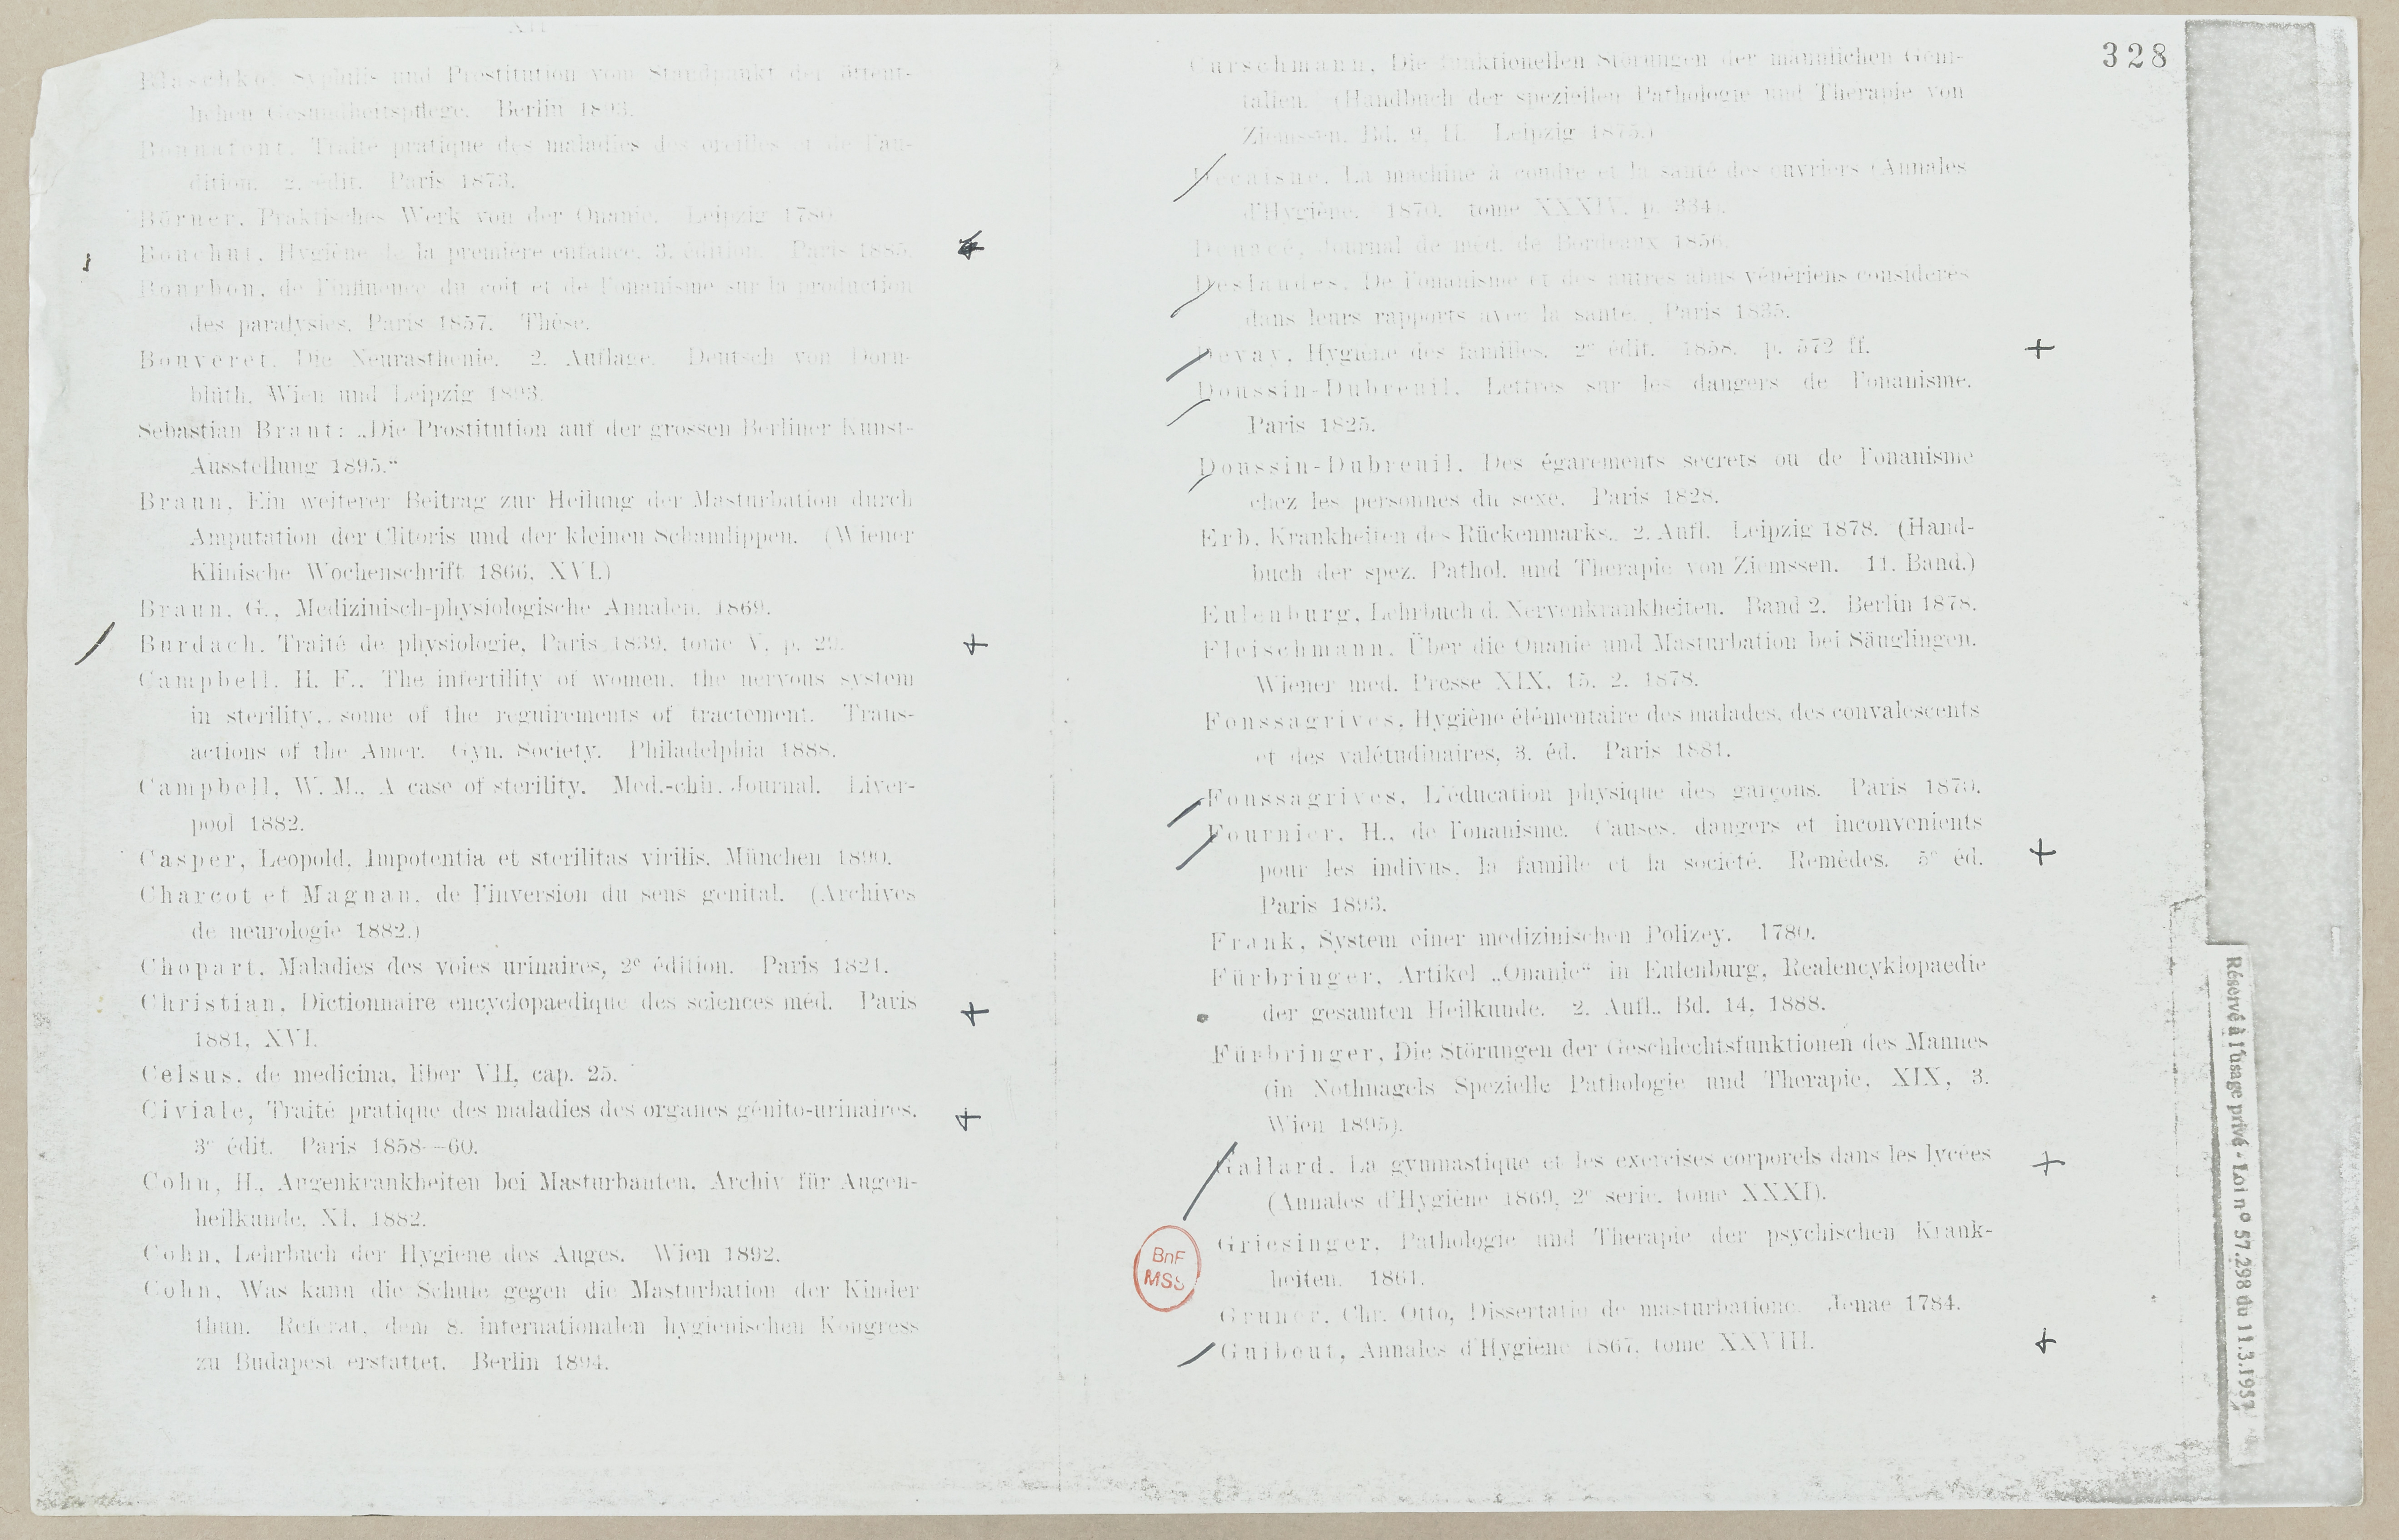 XII
Blaschko, Syphilis und Prostitution vom Standpunkt der öffent-
lichen Gesundheitspflege. Berlin 1893.
Bonnafont, Traité pratique des maladies des oreilles et de l'au-
dition. 2. édit. Paris 1873.
Börner, Praktisches Werk von der Onanie. Leipzig 1780.
Bouchut, Hygiène de la première enfance. 3. édition. Paris 1885.
Bourbon, de l'influence du coit et de l'onanisme sur la production
des paralysies. Paris 1857. Thèse.
Bouveret, Die Neurasthenie. 2. Auflage. Deutsch von Dorn-
blüth. Wien und Leipzig 1893.
Sebastian Brant: „Die Prostitution auf der grossen Berliner Kunst-
Ausstellung 1895.“
Braun, Ein weiterer Beitrag zur Heilung der Masturbation durch
Amputation der Clitoris und der kleinen Schamlippen. (Wiener
Klinische Wochenschrift 1866, XVI.)
Braun, G., Medizinisch-physiologische Annalen. 1869.
Burdach, Traité de physiologie, Paris 1839, tome V. p. 29.
Campbell, H. F., The infertility of women, the nervous system
in sterility, some of the reguirements of tractement. Trans-
actions of the Amer. Gyn. Society. Philadelphia 1888.
Campbell, W. M., A case of sterility. Med.-chir. Journal. Liver-
pool 1882.
Casper, Leopold, Impotentia et sterilitas virilis. München 1890.
Charcot et Magnan, de l'inversion du sens genital. (Archives
de neurologie 1882.)
Chopart, Maladies des voies urinaires, 2e édition. Paris 1821.
Christian, Dictionnaire encyclopaedique des sciences méd. Paris
1881, XVI.
Celsus, de medicina, liber VII, cap. 25.
Civiale, Traité pratique des maladies des organes génito-urinaires.
3e édit. Paris 1858—60.
Cohn, H., Augenkrankheiten bei Masturbanten, Archiv für Augen-
heilkunde, XI, 1882.
Cohn, Lehrbuch der Hygiene des Auges. Wien 1892.
Cohn, Was kann die Schule gegen die Masturbation der Kinder
thun. Referat, dem 8. internationalen hygienischen Kongress
zu Budapest erstattet. Berlin 1894.
328
Curschmann, Die funktionellen Störungen der männlichen Geni-
talien. (Handbuch der speziellen Pathologie und Therapie von
Ziemssen. Bd. 9. II. Leipzig 1875.)
Decaisne, La machine à coudre et la santé des ouvriers (Annales
d'Hygiène. 1870. tome XXXIV, p. 334).
Journal de méd. de Bordeaux 1856.
Deslandes, De l'onanisme et des autres abus vénériens considérés
dans leurs rapports avec la santé. Paris 1835.
Devay, Hygiène des familles. 2e édit. 1858. p. 572 ff.
Doussin-Dubreuil, Lettres sur les dangers de l'onanisme.
Paris 1825.
Doussin-Dubreuil, Des égarements secrets ou de l'onanisme
chez les personnes du sexe. Paris 1828.
Erb, Krankheiten des Rückenmarks, 2. Aufl. Leipzig 1878. (Hand-
buch der spez. Pathol. und Therapie von Ziemssen. 11. Band.)
Eulenburg, Lehrbuch d. Nervenkrankheiten. Band 2. Berlin 1878.
Fleischmann, Über die Onanie und Masturbation bei Säuglingen.
Wiener med. Presse XIX, 15. 2. 1878.
Fonssagrives, Hygiène élémentaire des malades, des convalescents
et des valétudinaires, 3. éd. Paris 1881.
Foussagrives, L'éducation physique des garçons. Paris 1870.
Fournier, H., de l'onanisme. Causes, dangers et inconvenients
pour les indivus, la famille et la société. Remèdes. 5e éd.
Paris 1893.
Frank, System einer medizinischen Polizey. 1780.
Fürbringer, Artikel „Onanie“ in Eulenburg, Realencyklopaedie
der gesamten Heilkunde. 2. Aufl., Bd. 14, 1888.
Fürbringer, Die Störungen der Geschlechtsfunktionen des Mannes
(in Nothnagels Spezielle Pathologie und Therapie, XIX, 3.
Wien 1895).
Gallard, La gymnastique et les exercises corporels dans les lycées
(Annales d'Hygiène 1869, 2e serie, tome XXXI).
Griesinger, Pathologie und Therapie der psychischen Krank-
heiten. 1861.
Gruner, Chr. Otto, Dissertatio de masturbatione. Jenae 1784.
Guibout, Annales d'Hygiène 1867, tome XXVIII.
BnF
MSS
Réservé à l'usage privé - Loi nº 57.298 du 11.3.1957